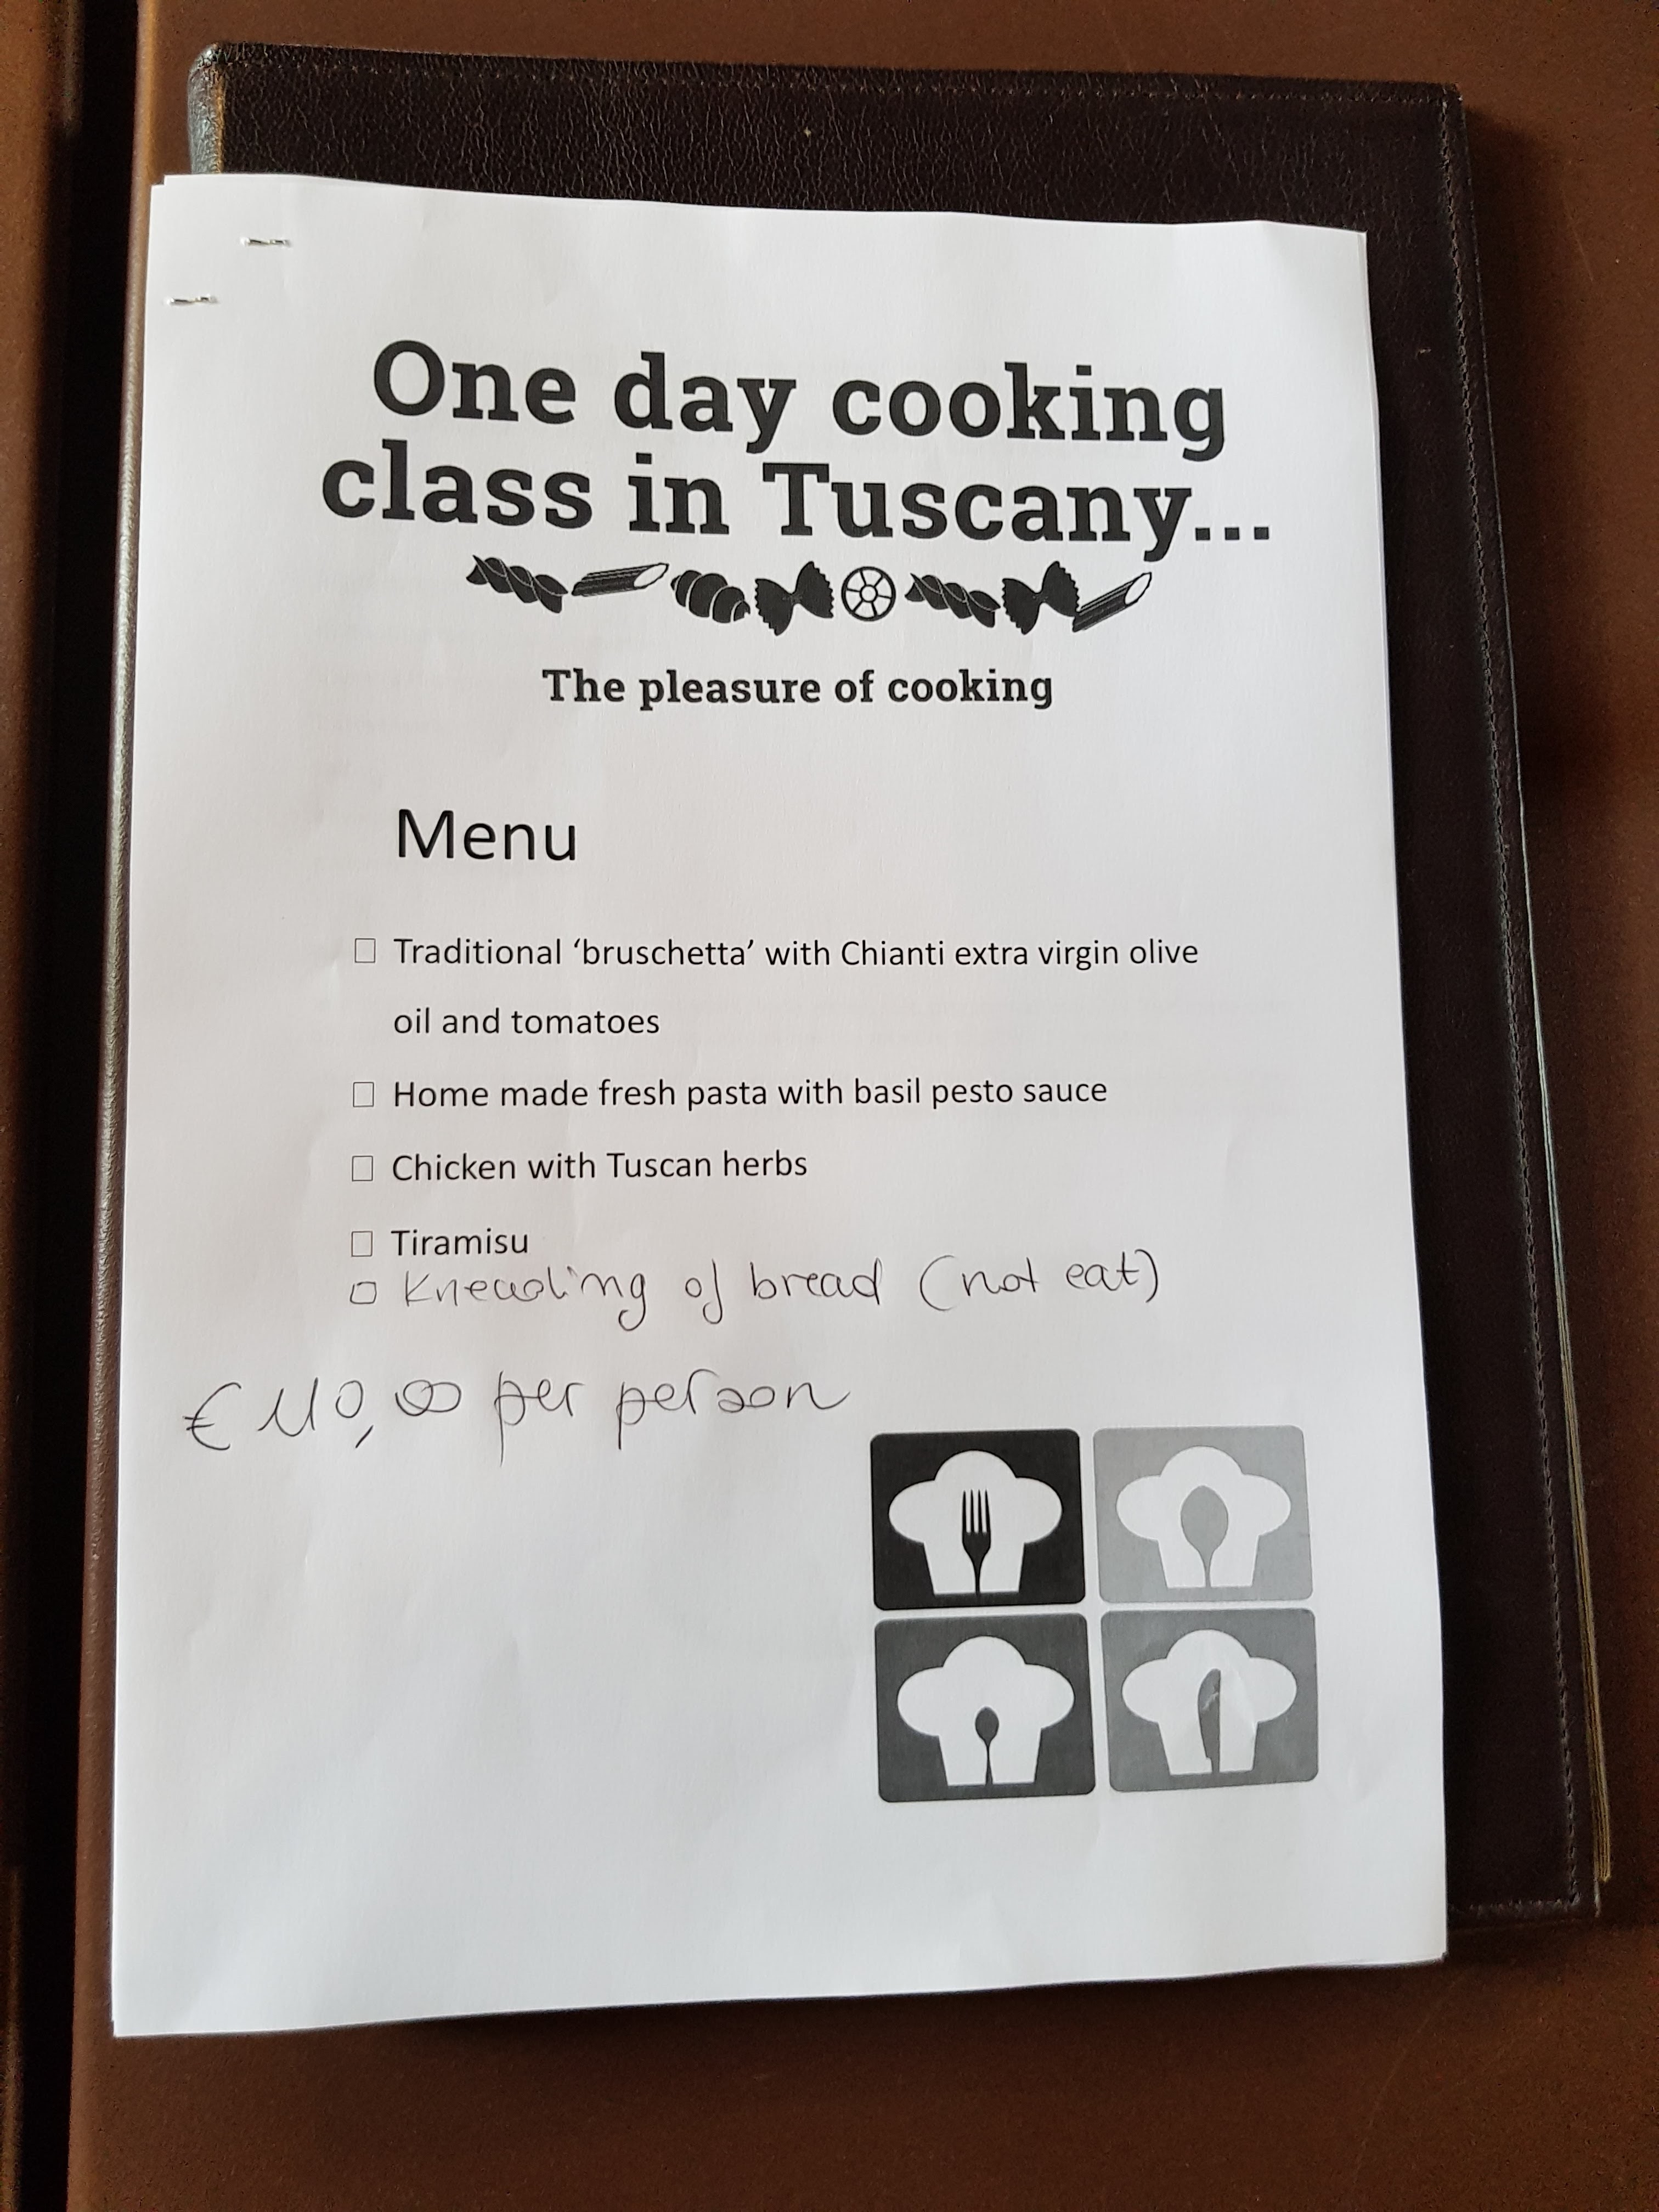 One day cooking
class in Tuscany...
The pleasure of cooking
Menu
Traditional ‘bruschetta’ with Chianti extra virgin olive
oil and tomatoes
Home made fresh pasta with basil pesto sauce
Chicken with Tuscan herbs
Tiramisu
Kneading of bread (not eat)
€ 110,00 per person